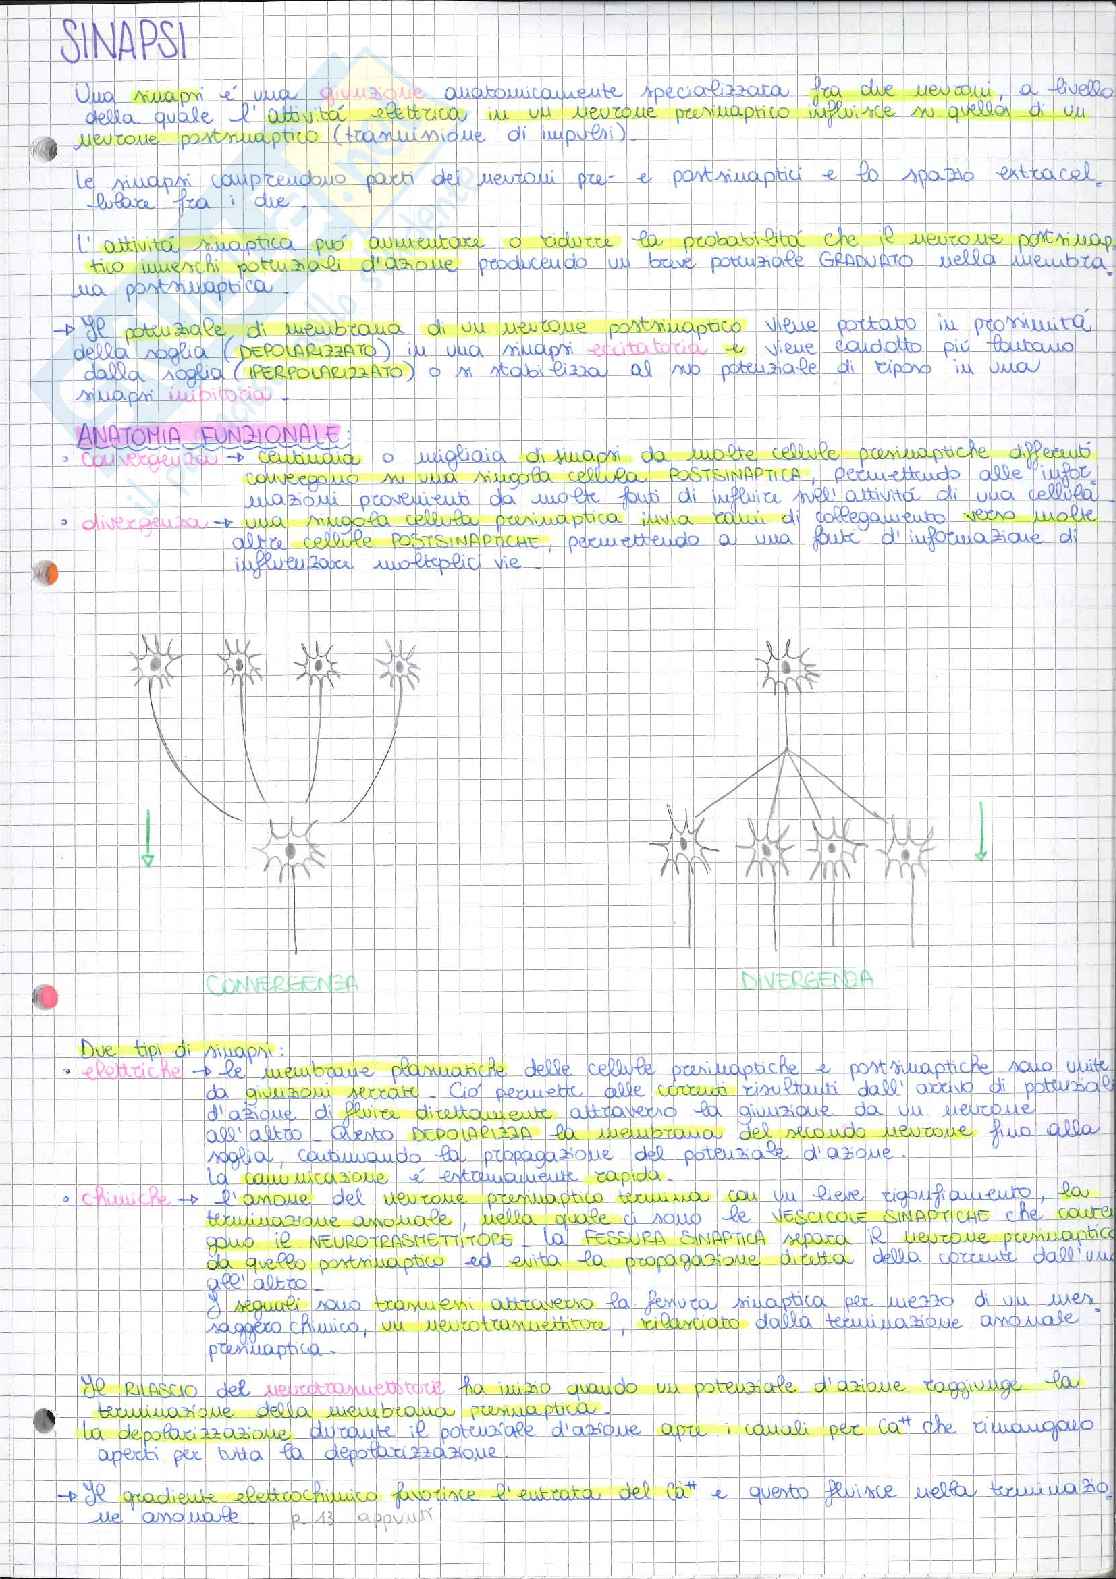 SINAPSI
Una sinapsi é una giunzione anatomicamente specializzata fra due neuroni, a livello
della quale l'attività elettrica in un neurone presinaptico influisce su quella di un
neurone postsinaptico (trasmissione di impulsi).
Le sinapsi comprendono parti dei neuroni pre- e postsinaptici e lo spazio extracel-
lulare fra i due.
L'attività sinaptica può aumentare o ridurre la probabilità che il neurone postsinap-
tico inneschi potenziali d'azione producendo un breve potenziale GRADUATO nella membra-
na postsinaptica.
→ Il potenziale di membrana di un neurone postsinaptico viene portato in prossimità
della soglia (DEPOLARIZZATO) in una sinapsi eccitatoria e viene condotto più lontano
dalla soglia (IPERPOLARIZZATO) o si stabilizza al suo potenziale di riposo in una
sinapsi inibitoria.
ANATOMIA FUNZIONALE:
• convergenza → centinaia o migliaia di sinapsi da molte cellule presinaptiche differenti
convergono su una singola cellula POSTSINAPTICA, permettendo alle infor-
mazioni provenienti da molte fonti di influire sull'attività di una cellula
• divergenza → una singola cellula presinaptica invia rami di collegamento verso molte
altre cellule POSTSINAPTICHE, permettendo a una fonte d'informazione di
influenzare molteplici vie.
CONVERGENZA
DIVERGENZA
Due tipi di sinapsi:
• elettriche → le membrane plasmatiche delle cellule presinaptiche e postsinaptiche sono unite
da giunzioni serrate. Ció permette alle correnti risultanti dall'arrivo di potenziali
d'azione di fluire direttamente attraverso la giunzione da un neurone
all'altro. Questo DEPOLARIZZA la membrana del secondo neurone fino alla
soglia, continuando la propagazione del potenziale d'azione.
La comunicazione é estremamente rapida.
• chimiche → l'assone del neurone presinaptico termina con un lieve rigonfiamento, la
terminazione assonale, nella quale ci sono le VESCICOLE SINAPTICHE che conten-
gono il NEUROTRASMETTITORE. La FESSURA SINAPTICA separa il neurone presinaptico
da quello postsinaptico ed evita la propagazione diretta della corrente dall'uno
all'altro.
I segnali sono trasmessi attraverso la fessura sinaptica per mezzo di un mes-
saggero chimico, un neurotrasmettitore, rilasciato dalla terminazione assonale
presinaptica.
Il RILASCIO del neurotrasmettitore ha inizio quando un potenziale d'azione raggiunge la
terminazione della membrana presinaptica.
La depolarizzazione durante il potenziale d'azione apre i canali per Ca⁺⁺ che rimangono
aperti per tutta la depolarizzazione.
→ Il gradiente elettrochimico favorisce l'entrata del Ca⁺⁺ e questo fluisce nella terminazio-
ne assonale. p. 13 appunti